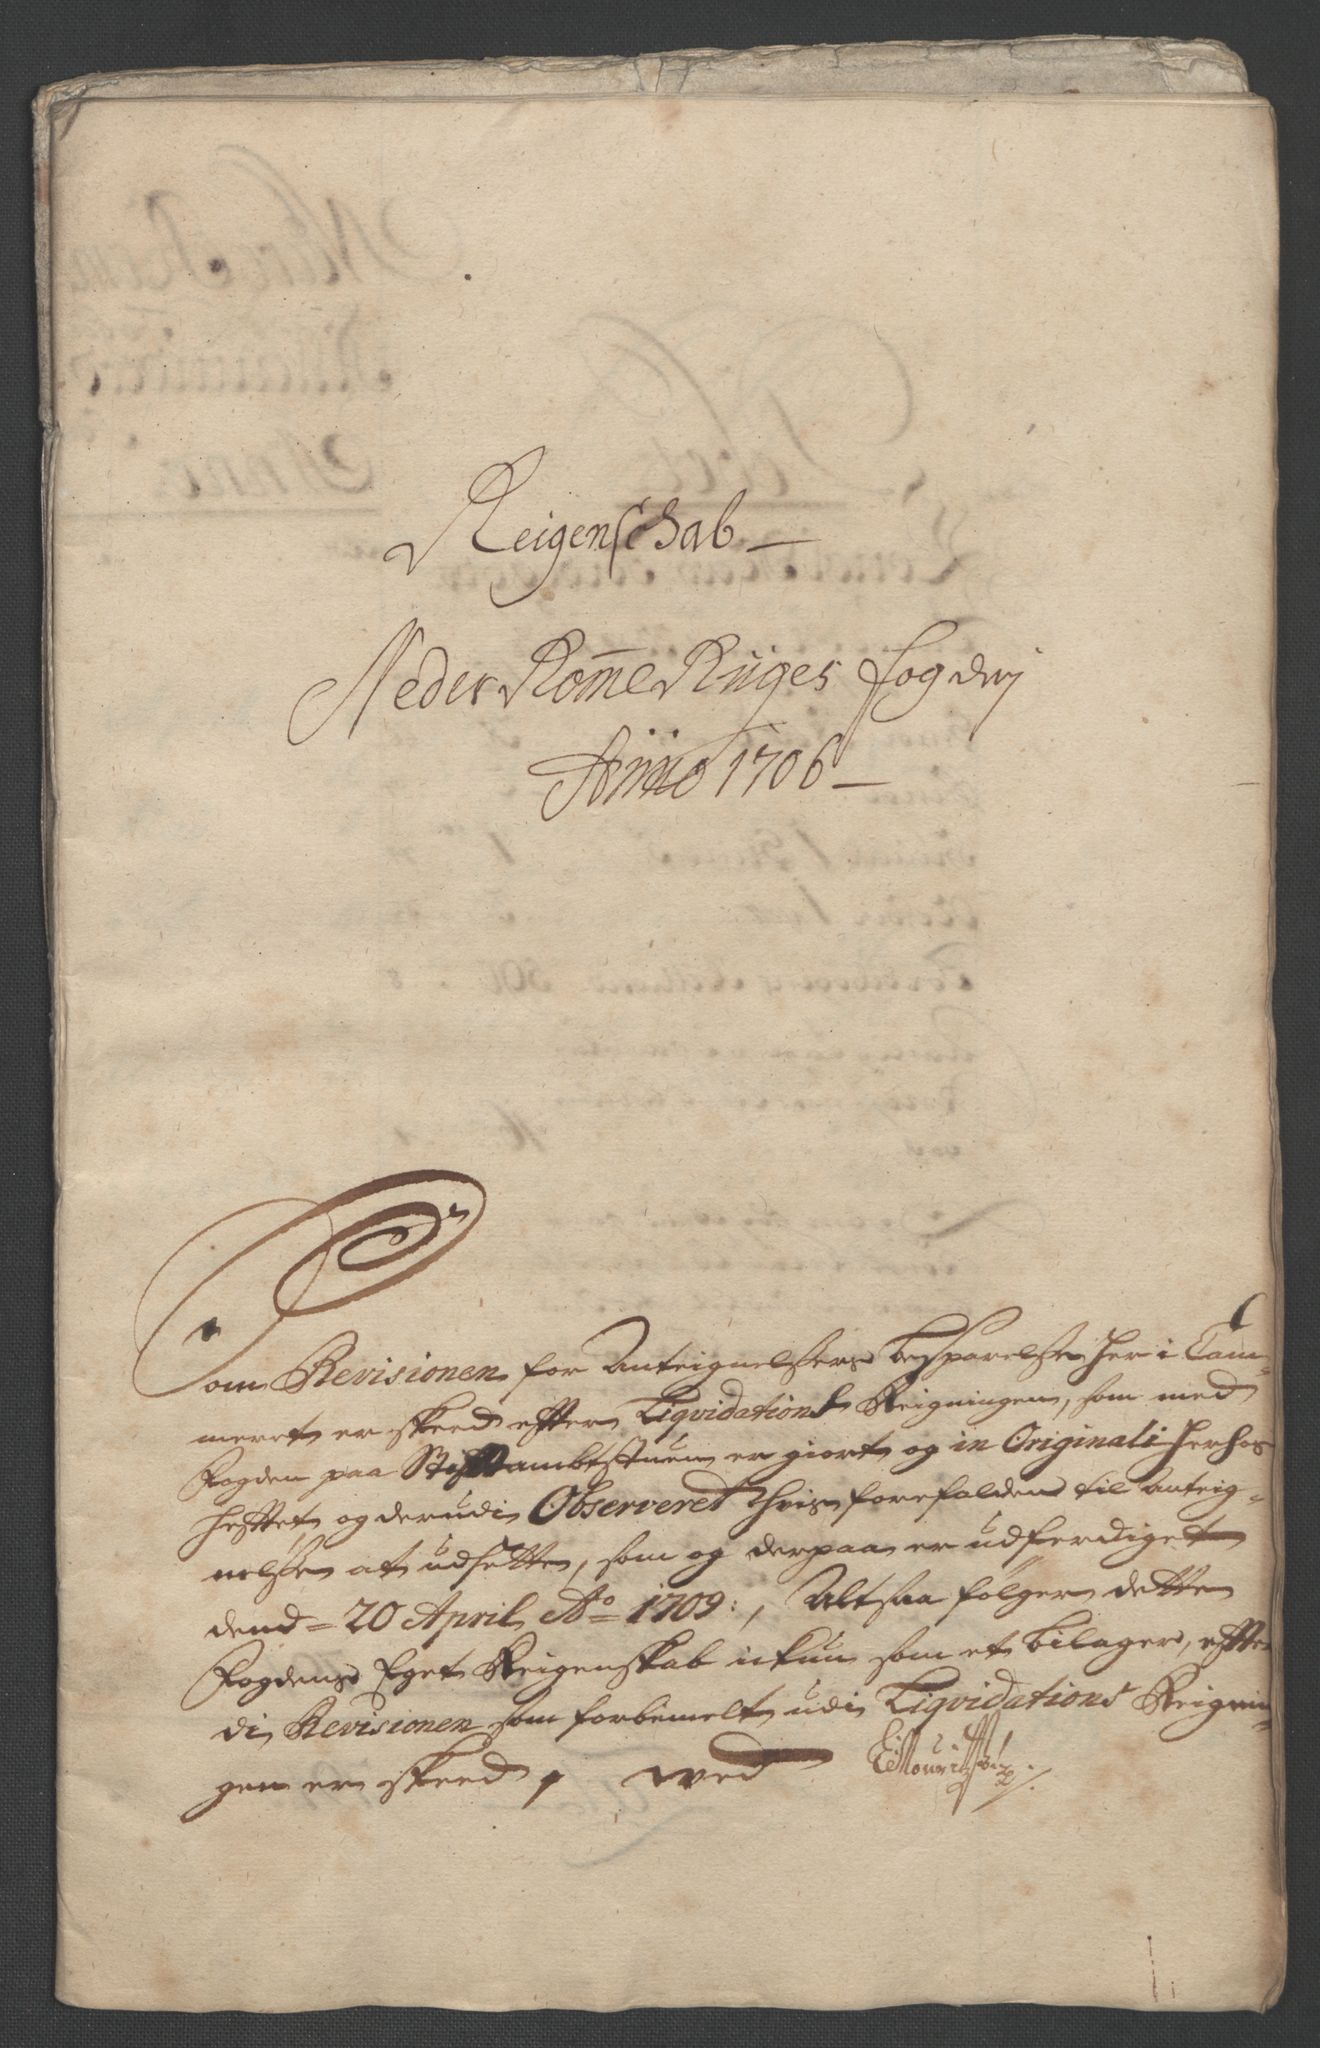 Reigenschab
Neder Rom̄e Riiges fogdrj
Anno 1706
Som Revisionen for Anteignelsers besparelse her i Cam-
meret er skeed efter Liqvidations Reigningen, som med
Fogden paa Stiftambtstuen er giort og in Originali herhos
heftet, og derudi Observeret hvis forefaldens til Anteig-
nelsen at udsette, som og derpaa er udferdiget
dend 20 April Ao 1709:, Altsaa følger dette
Fogdens Eget Reigenskab ickun som et bilager, efter
di Revisionen som forbemelt udi Liqvidations Reignin-
gen er skeed, wed